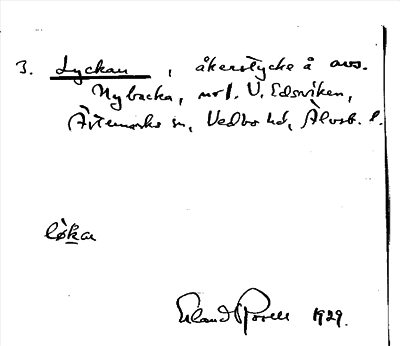 3. Lyckan, åkerstycke å avs.
Nybacka, not. V. Edsviken,
Ärtemarks sn, Vedbo hd, Älvsb. l.
lø̀kar
Erland Rosell 1929.